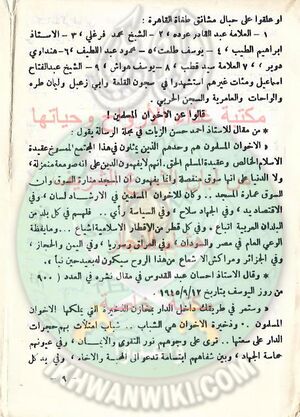 او علقوا على حبال مشانق طغاة القاهرة :
١ - العلامة عبد القادر عوده ٢ - الشيخ محمد فرغلي ٣ -
ابراهيم الطيب ٤ - يوسف طلعت ٥ - محمود عبد اللطيف ٦ - هنداوي
دوير ٧ - العلامة سيد قطب ٨ - يوسف هواش ٩ - الشيخ عبدالفتاح
اسماعيل ومئات غيرهم استشهدوا في سجون القلعة وابي زعبل وليمان طره
والواحات والعامرية والسجن الحربي ..
قالوا عن الاخوان المسلمين :
* من مقال للاستاذ احمد حسن الزيات في مجلة الرسالة يقول :
« الاخوان المسلمون هم وحدهم الذين يمثلون في هذا المجتمع الممسوخ عقيدة
الاسلام الخالص وعقيدة المسلم الحق . انهم لا يفهمون الدين على انه صومعة منعزلة،
ولا الدنيا على انها سوق منفصلة وانما يفهمون ان المسجد منارة السوق وان
السوق عمارة المسجد .. وكان للاخوان المسلمين في الارشاد لسان ، وفي
الاقتصاد يد ، وفي الجهاد سلاح ، وفي السياسة رأي .. فلهم في كل بلد من
البلدان العربية اتباع ، وفي كل قطر من الاقطار الاسلامية اشياع .. وما يقظة
الوعي العام في مصر والسودان ، وفي العراق وسوريا ، وفي اليمن والحجاز ،
وفي الجزائر ومراكش الا شعاع من هذا الروح سيكون له بعد حين نبأ ».
* وقال الاستاذ احسان عبد القدوس في مقال نشره في العدد ( ٩٠٠ )
من روز اليوسف بتاريخ ١٩٤٥/٩/١٣ :
« وستمر في طريقك داخل الدار بمخازن الذخيرة التي يملكها الاخوان
المسلمون .. وذخيرة الاخوان هي الشباب .. شباب امتلأت بهم حجرات
الدار على سعتها .. ترى على وجوههم نور التقوى والايمان ، وفي عيونهم
حماسة الجهاد ؛ وبين شفاههم ابتسامة تدعو الى المحبة والاخاء ، وفي يد كل
- ٩ -
IKHWANWIKI.COM